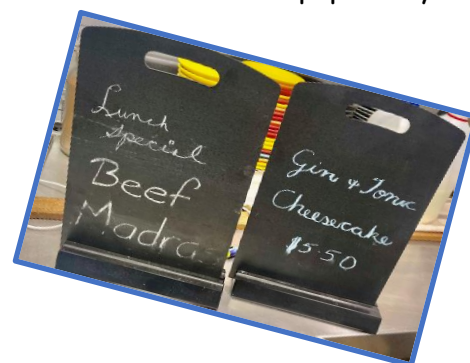 Lunch
Special
Beef
Madras
Gin & Tonic
Cheesecake
$5.50